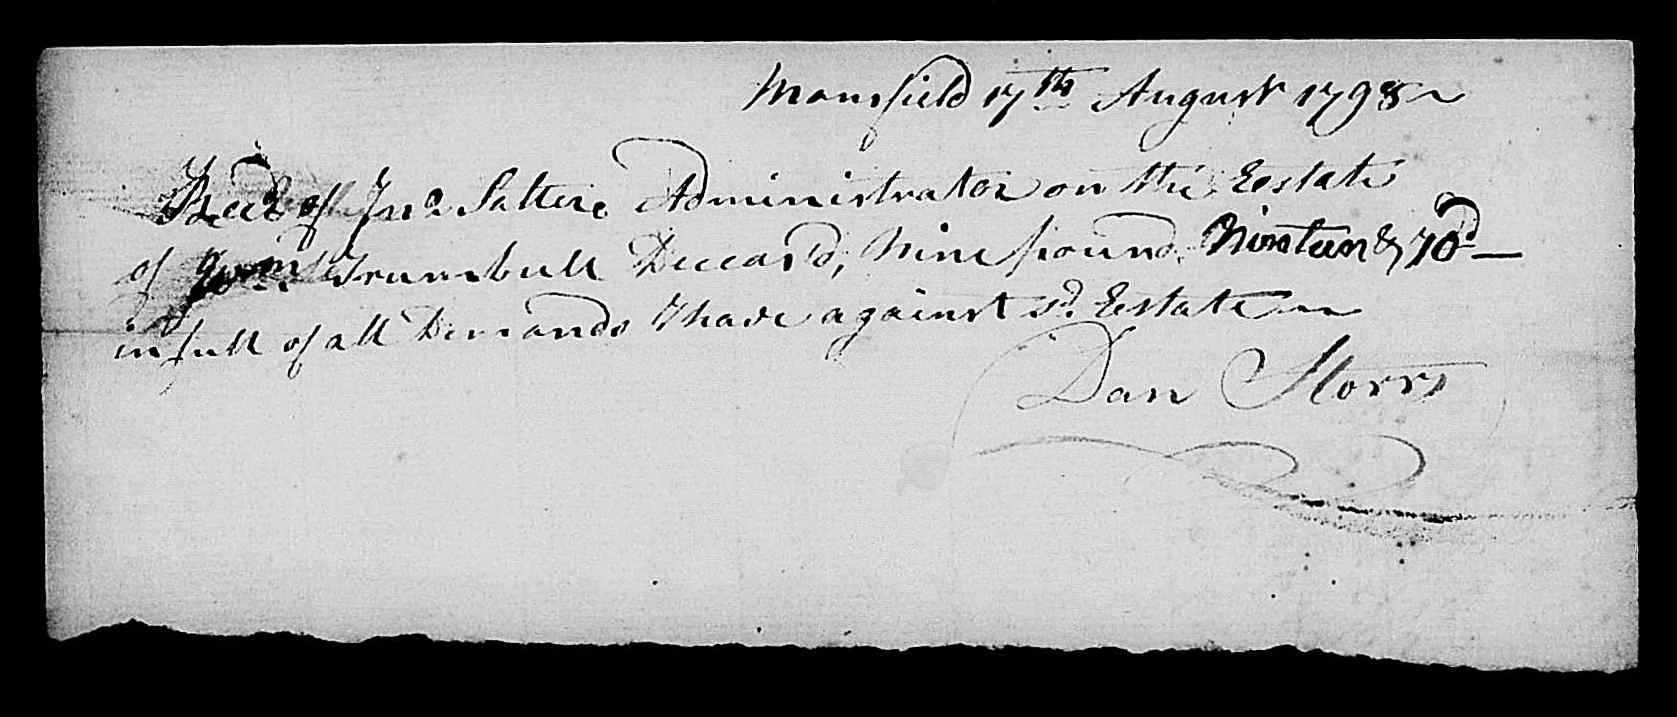 Mansfield 17th August 1798
Recd of Jno Salter Administrator on the Eestate
of Wm Trumbull Deceasd, Nine pound Nineteen & 10d
in full of all Demands I have against sd Eestate
Dan Storrs